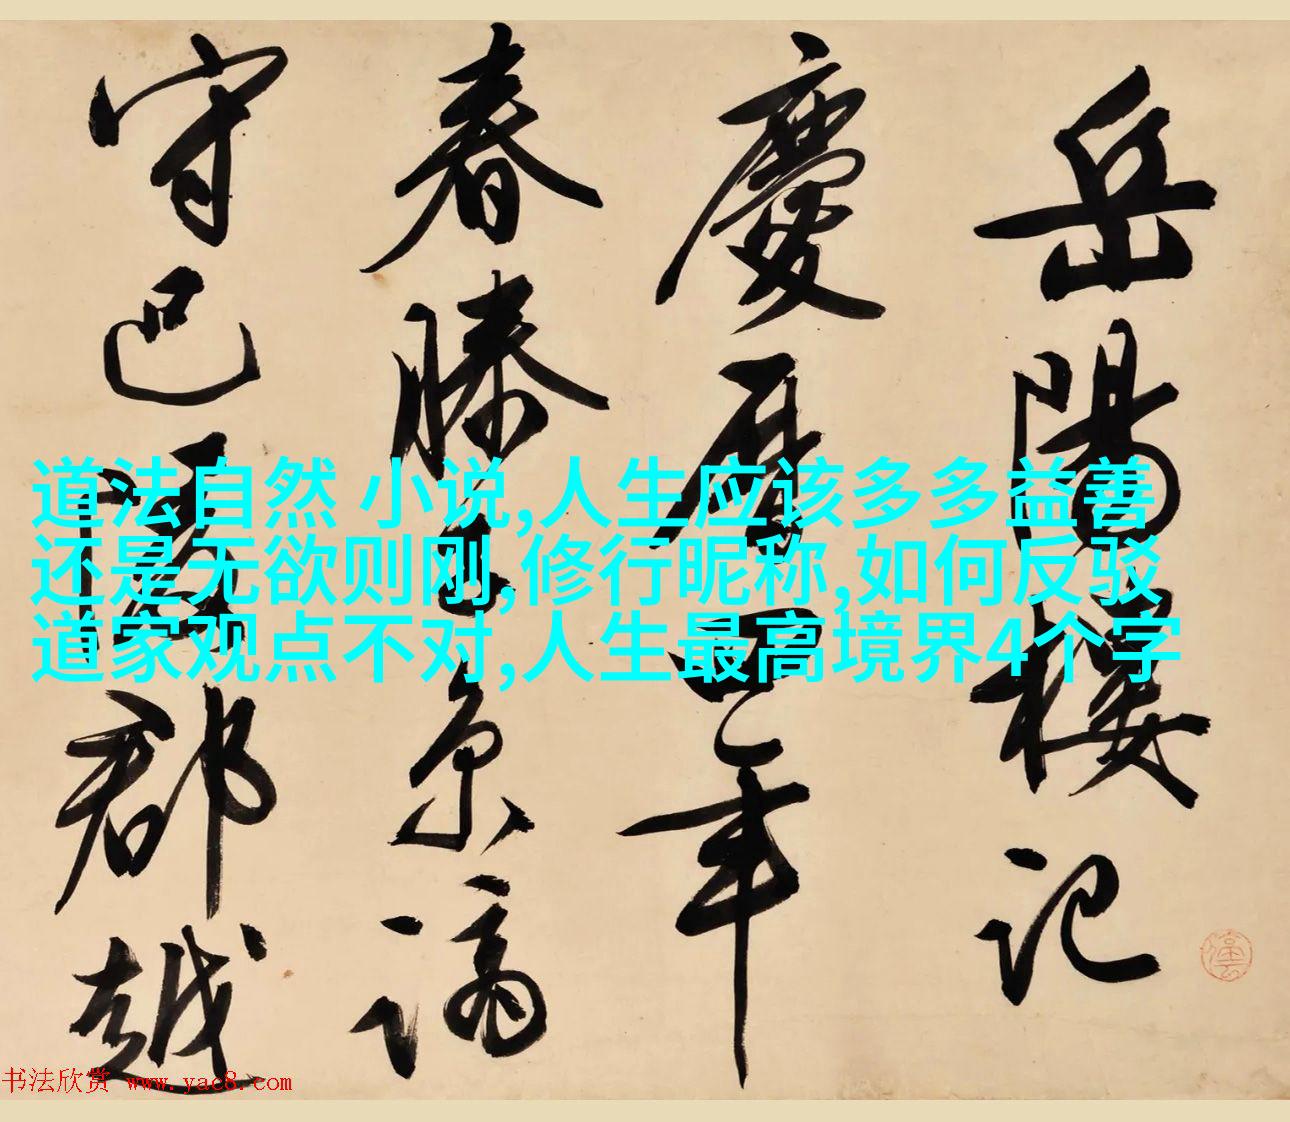 岳陽樓記
慶曆四年
春滕子京謫
守巴陵郡越
道法自然 小说,人生应该多多益善
还是无欲则刚,修行昵称,如何反驳
道家观点不对,人生最高境界4个字
书法欣赏 www.yac8.com